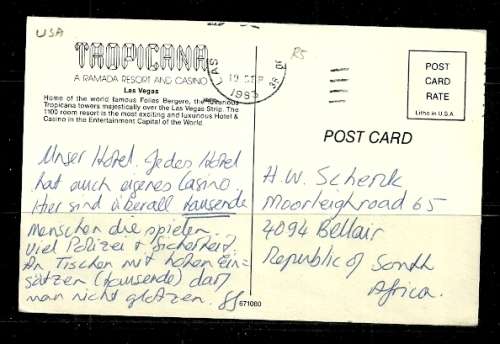 USA
TROPICANA
A RAMADA RESORT AND CASINO
Las Vegas
Home of the world famous Folies Bergere, the luxurious
Tropicana towers majestically over the Las Vegas Strip. The
1100 room resort is the most exciting and luxurious Hotel &
Casino in the Entertainment Capital of the World.
LAS
19 SEP
1983
R5
POST
CARD
RATE
Litho in U.S.A.
POST CARD
Unser Hotel. Jedes Hotel
hat auch eigenes Casino.
Hier sind überall tausende
menschen die spielen.
Viel Polizei + Sicherheit.
An Tischen mit hohen Ein=
sätzen (tausende) darf
man nicht glotzen.
671080
H.W. Schenk
Moorleighroad 65
4094 Bellair
Republic of South
Africa.